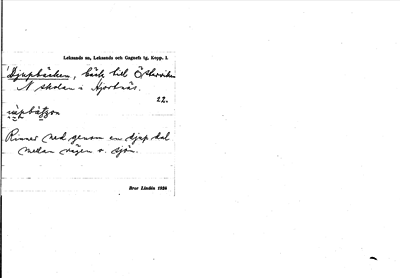 Leksands sn, Leksands och Gagnefs tg, Kopp. l.
Djupbäcken, bäck till Österviken
N skolan i Hjortnäs.
22.
Rinner ned genom en djup dal
mellan vägen o. sjön.
Bror Lindén 1936